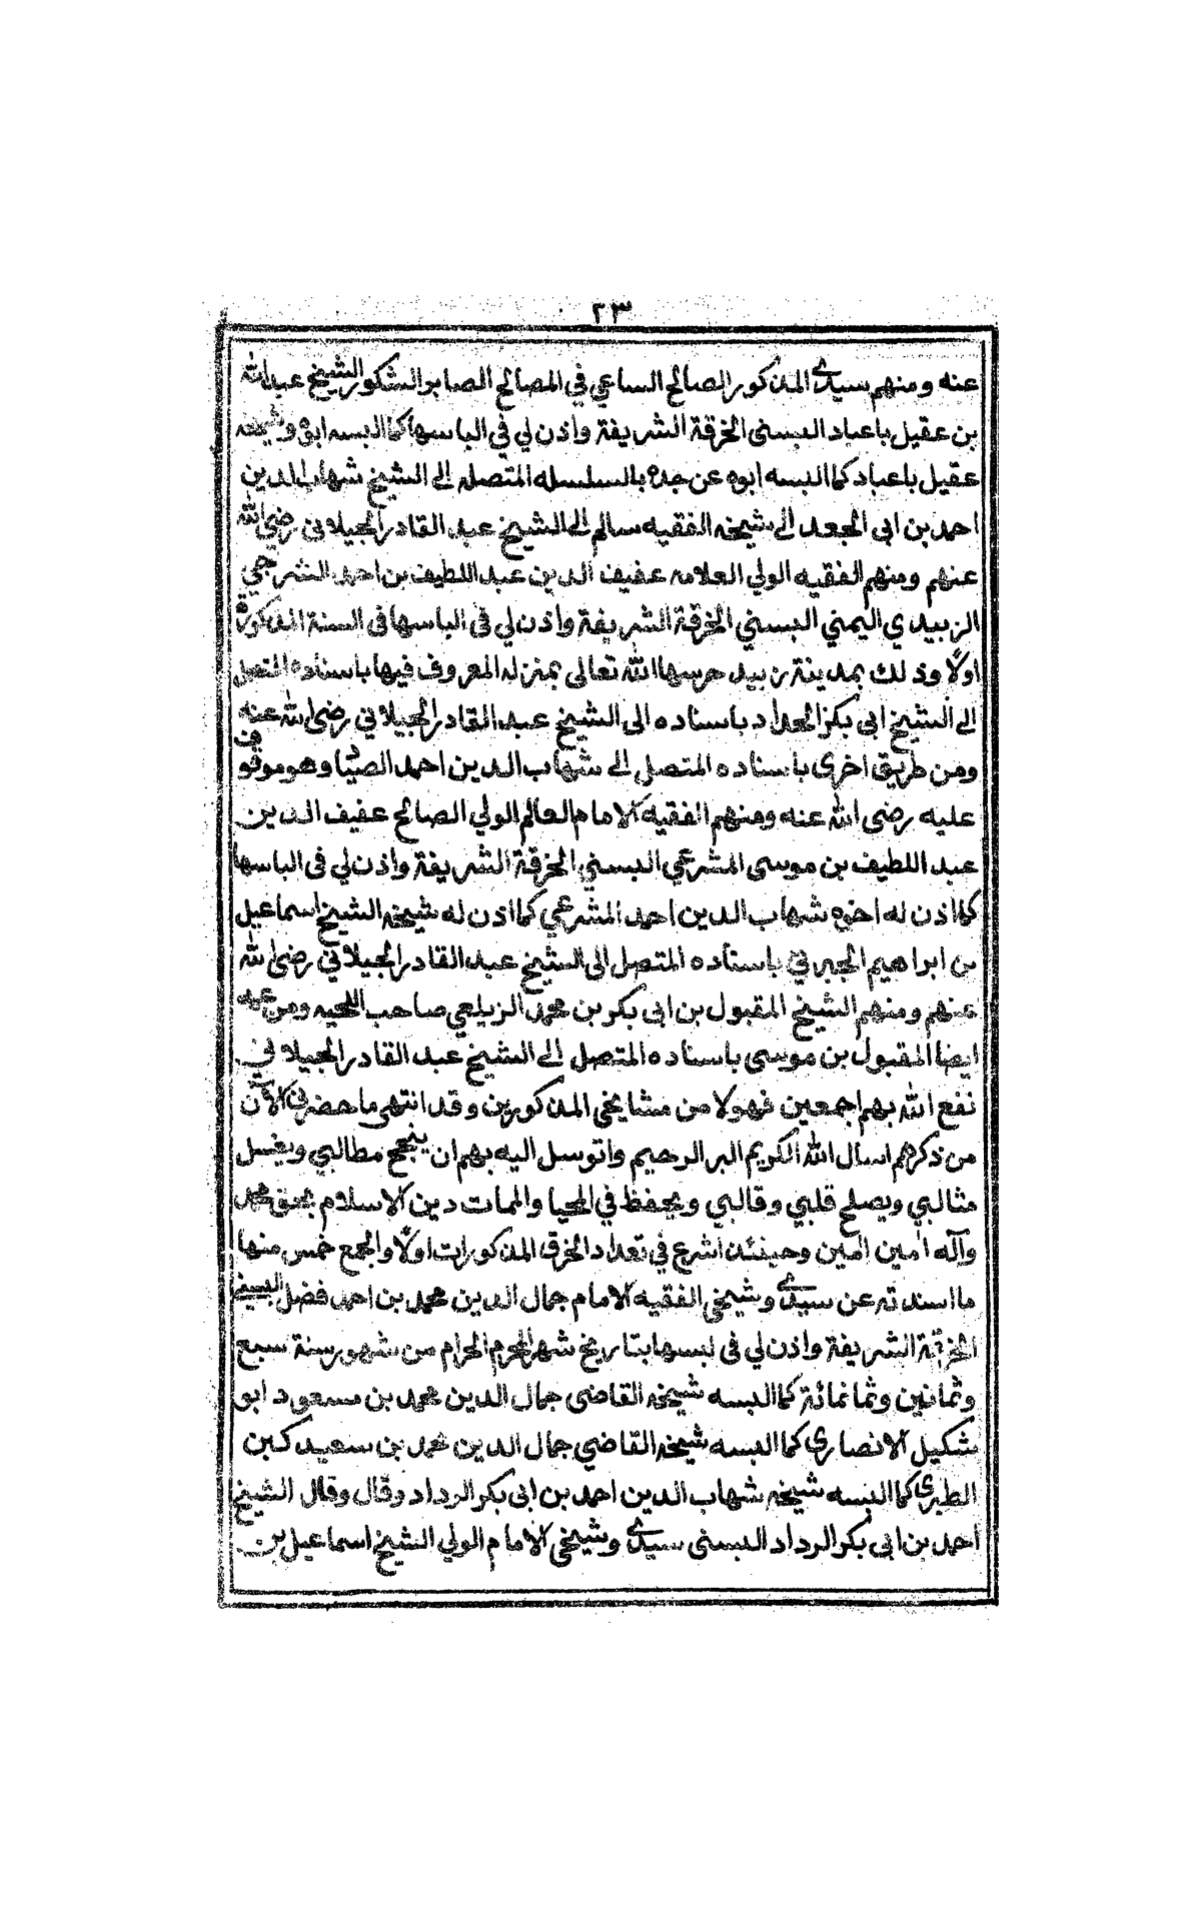 ٢٣
عنه ومنهم سيدي المذكور الصالح الساعي في المصالح الصابر الشكور الشيخ عبد الله
بن عقيل باعباد البسنى الخرقة الشريفة واذن لي في الباسها كما البسه ابوه وشيخه
عقيل باعباد كما البسه ابوه عن جده بالسلسله المتصله الى الشيخ شهاب الدين
احمد بن ابى الجعد الى شيخه الفقيه سالم الى الشيخ عبد القادر الجيلانى رضي الله
عنهم ومنهم الفقيه الولي العلامه عفيف الدين عبد اللطيف بن احمد الشرجي
الزبيدي اليمني البسني الخرقة الشريفة واذن لي فى الباسها فى السنة المذكورة
اولًا وذلك بمدينة زبيد حرسها الله تعالى بمنزله المعروف فيها باسناده المتصل
الى الشيخ ابى بكر الحداد باسناده الى الشيخ عبد القادر الجيلاني رضي الله عنه
ومن طريق اخرى باسناده المتصل الى شهاب الدين احمد الصياد وهو موقوف
عليه رضى الله عنه ومنهم الفقيه الامام العالم الولي الصالح عفيف الدين
عبد اللطيف بن موسى المشرعي البسني الخرقة الشريفة واذن لي فى الباسها
كما اذن له اخوه شهاب الدين احمد المشرعي كما اذن له شيخه الشيخ اسماعيل
بن ابراهيم الجبرتي باسناده المتصل الى الشيخ عبد القادر الجيلاني رضى الله
عنهم ومنهم الشيخ المقبول بن ابى بكر بن محمد الزيلعي صاحب اللحيه ومن عمه
ايضا المقبول بن موسى باسناده المتصل الى الشيخ عبد القادر الجيلاني
نفع الله بهم اجمعين فهولا من مشايخي المذكورين وقد انتهى ما حضرني الآن
من ذكرهم اسال الله الكريم البر الرحيم واتوسل اليه بهم ان ينجح مطالبي ويغسل
مثالبي ويصلح قلبي وقالبي ويحفظ في المحيا والممات دين الاسلام بحق محمد
وآله امين امين وحينئذ اشرع في تعداد الخرق المذكورات اولًا والجمع خمس منها
ما اسندته عن سيدي وشيخى الفقيه الامام جمال الدين محمد بن احمد فضل البسني
الخرقة الشريفة واذن لي فى لبسها بتاريخ شهر المحرم الحرام من شهور سنة سبع
وثمانين وثمانمائة كما البسه شيخه القاضى جمال الدين محمد بن مسعود ابو
شكيل الانصارى كما البسه شيخه القاضي جمال الدين محمد بن سعيد كبن
الطبرى كما البسه شيخه شهاب الدين احمد بن ابى بكر الرداد وقال وقال الشيخ
احمد بن ابى بكر الرداد البسنى سيدي وشيخي الامام الولي الشيخ اسماعيل بن